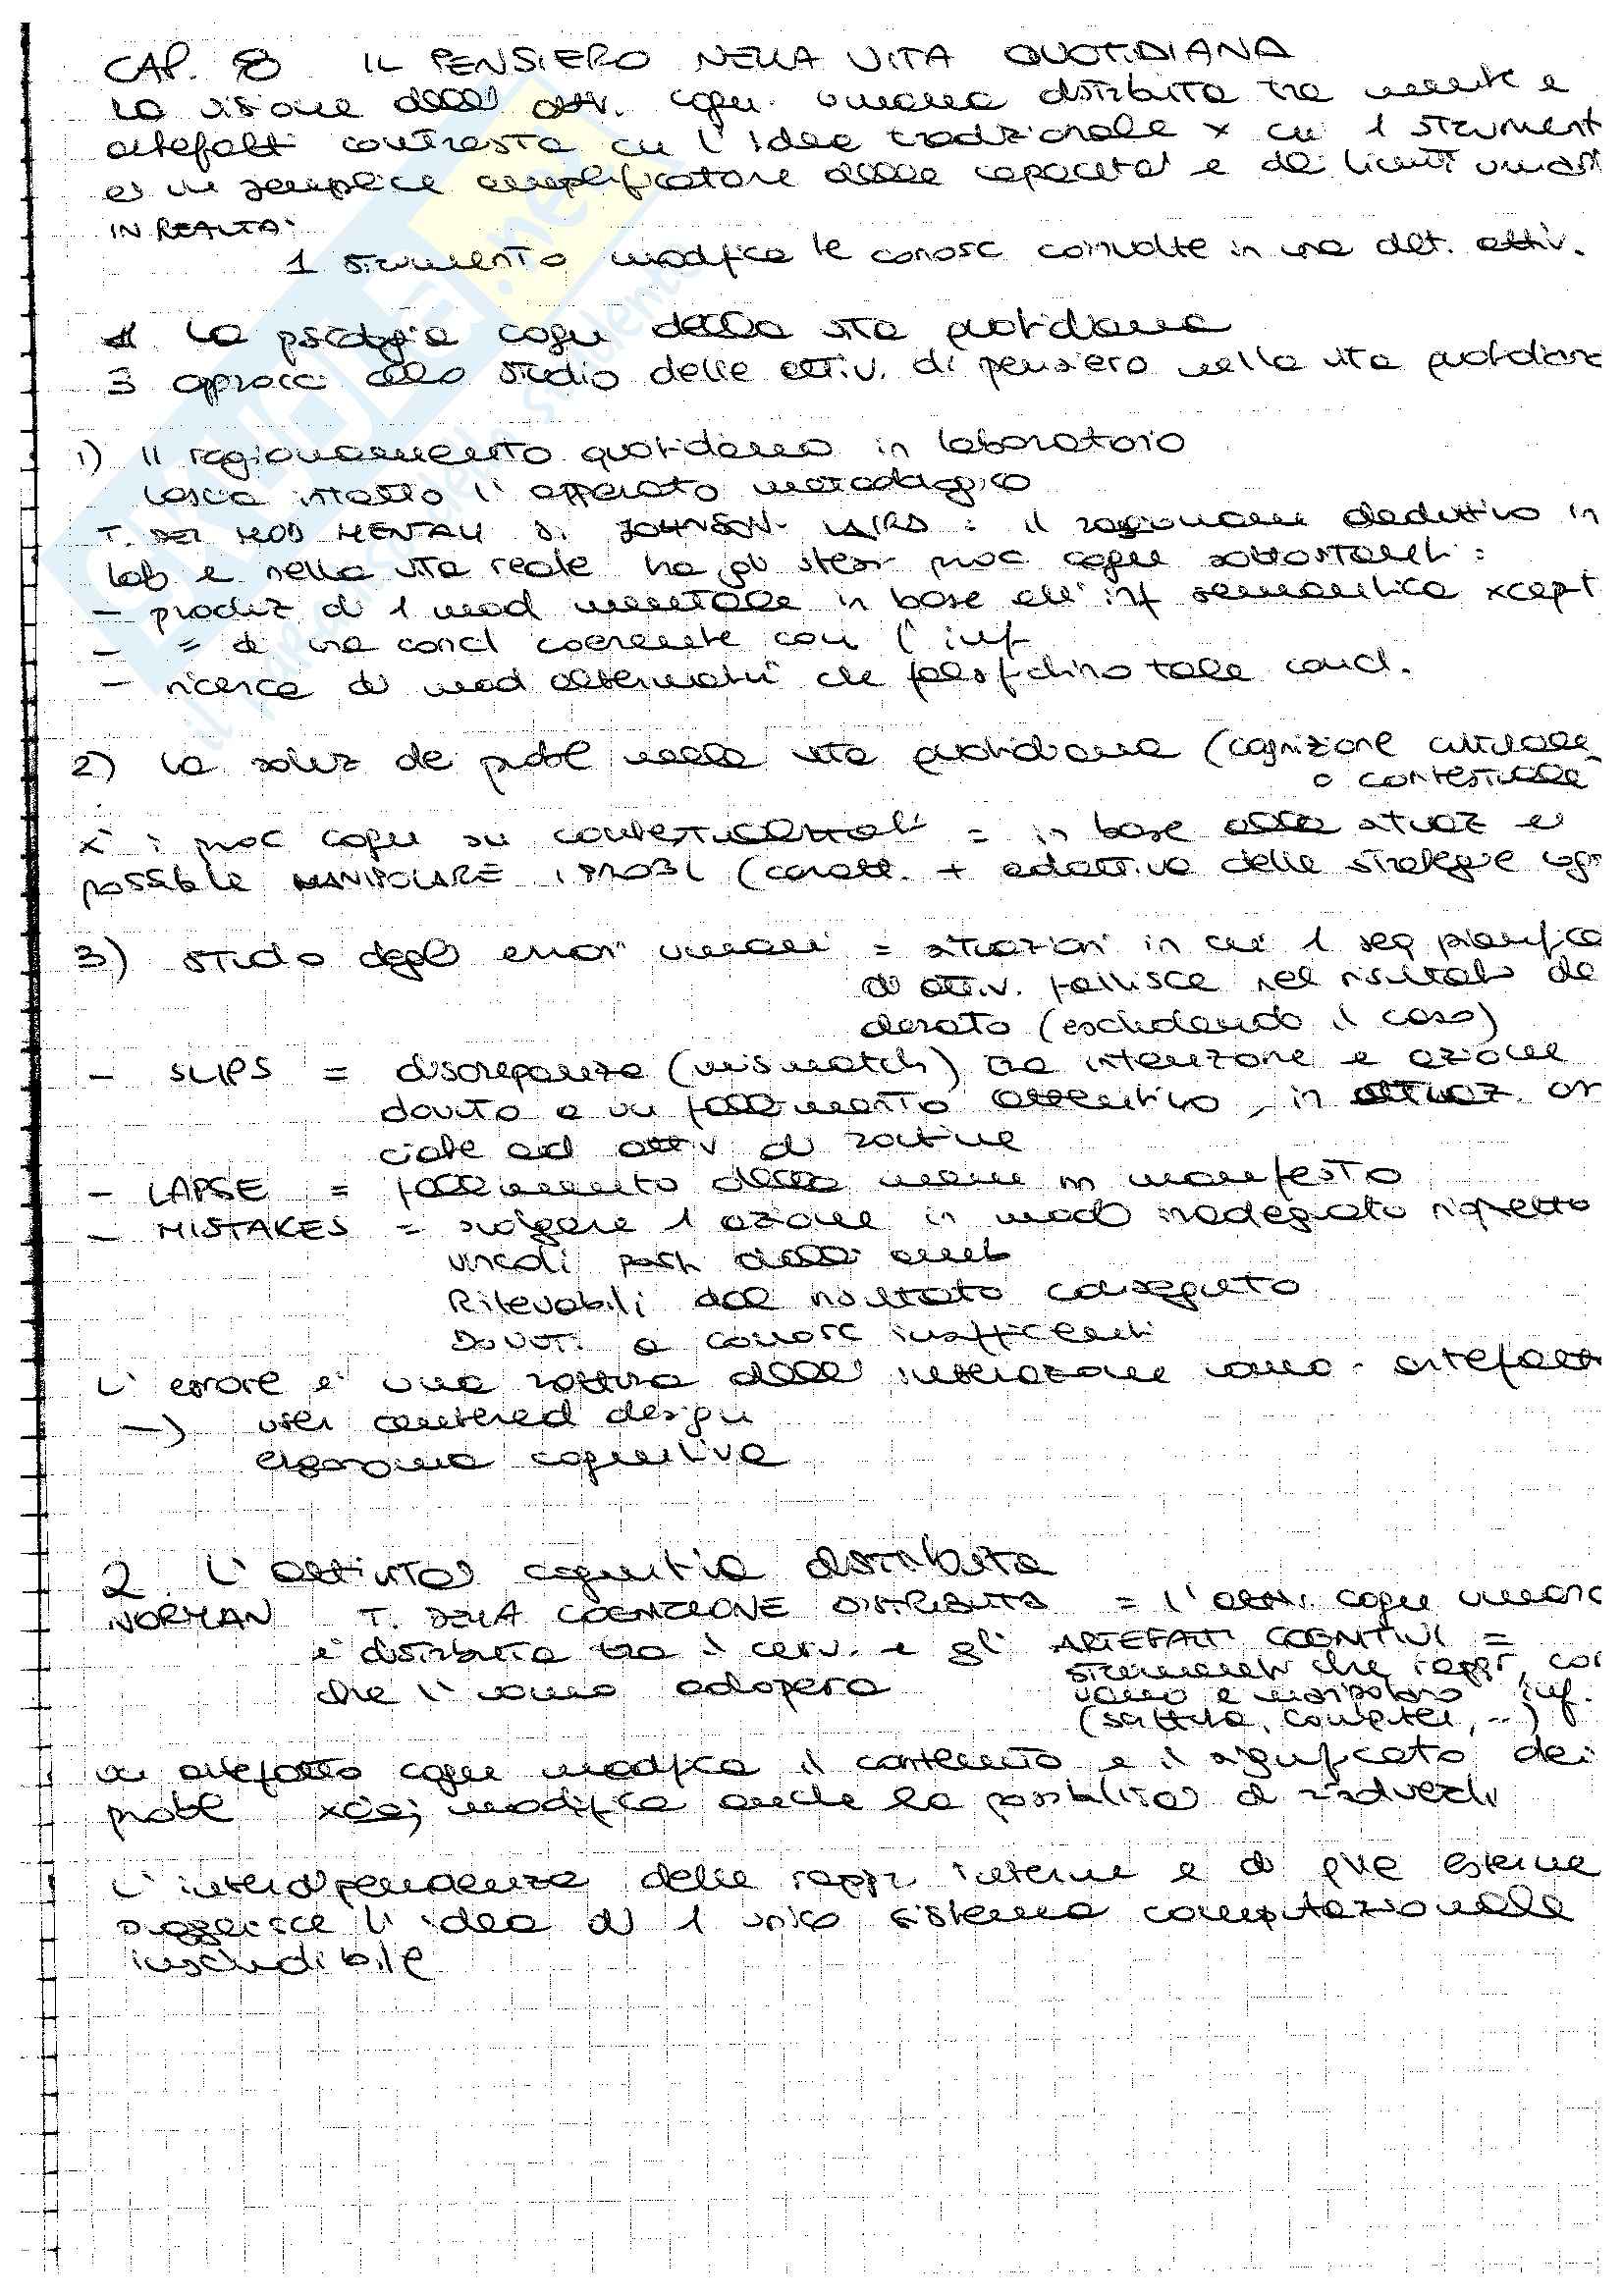 CAP. 8 IL PENSIERO NELLA VITA QUOTIDIANA
La visione dell' attiv. cogn. umana distribuita tra mente e
artefatti contrasta cn l'idea tradizionale x cui 1 strument
è un semplice amplificatore delle capacità e dei limiti umani
IN REALTA'
1 strumento modifica le conosc coinvolte in una det. attiv.
1 La psicologia cogn della vita quotidiana
3 approcci allo studio delle attiv. di pensiero nella vita quotidiana
1) Il ragionamento quotidiano in laboratorio
lascia intatto l'apparato metodologico
T. DEI MOD MENTALI DI JOHNSON-LAIRD : il ragionam deduttivo in
lab e nella vita reale ha gli stessi proc cogn sottostanti :
- produz di 1 mod mentale in base all'inf semantica xcept
- = di una concl coerente con l'inf
- ricerca di mod alternativi che falsifichino tale concl.
2) La soluz dei probl nella vita quotidiana (cognizione culturale
o contestuale
x' i proc cogn sn contestualizzati = in base alla situaz è
possibile MANIPOLARE I PROBL (caratt. + adattiva delle strategie cgn
3) studio degli errori umani = situazioni in cui 1 seq pianifica
di attiv. fallisce nel risultato de
derato (escludendo il caso)
- SLIPS = discrepanza (mismatch) tra intenzione e azione
dovuto a un fallimento attentivo, in situaz. as
ciate ad attiv di routine
- LAPSE = fallimento della mem nn manifesto
- MISTAKES = svolgere 1 azione in modo inadeguato rispetto
vincoli posti dall' amb
Rilevabili dal risultato conseguito
DOVUTI a conosc insufficienti
L'errore è una rottura dell' interazione uomo - artefatt
-> user centered design
ergonomia cognitiva
2. L'attività cognitiva distribuita
NORMAN T. DELLA COGNIZIONE DISTRIBUITA = l'attiv. cogn umana
è distribuita tra il cerv. e gli ARTEFATTI COGNITIVI =
che l'uomo adopera
strumenti che rappr, con
vano e manipolano inf.
(scrittura, computer, ..)
un artefatto cogn modifica il contenuto e il significato dei
probl xciò modifica anche la possibilità di risolverli
L'interdipendenza delle rappr interne e di qlle esterne
suggerisce l'idea di 1 unico sistema computazionale
inscindibile